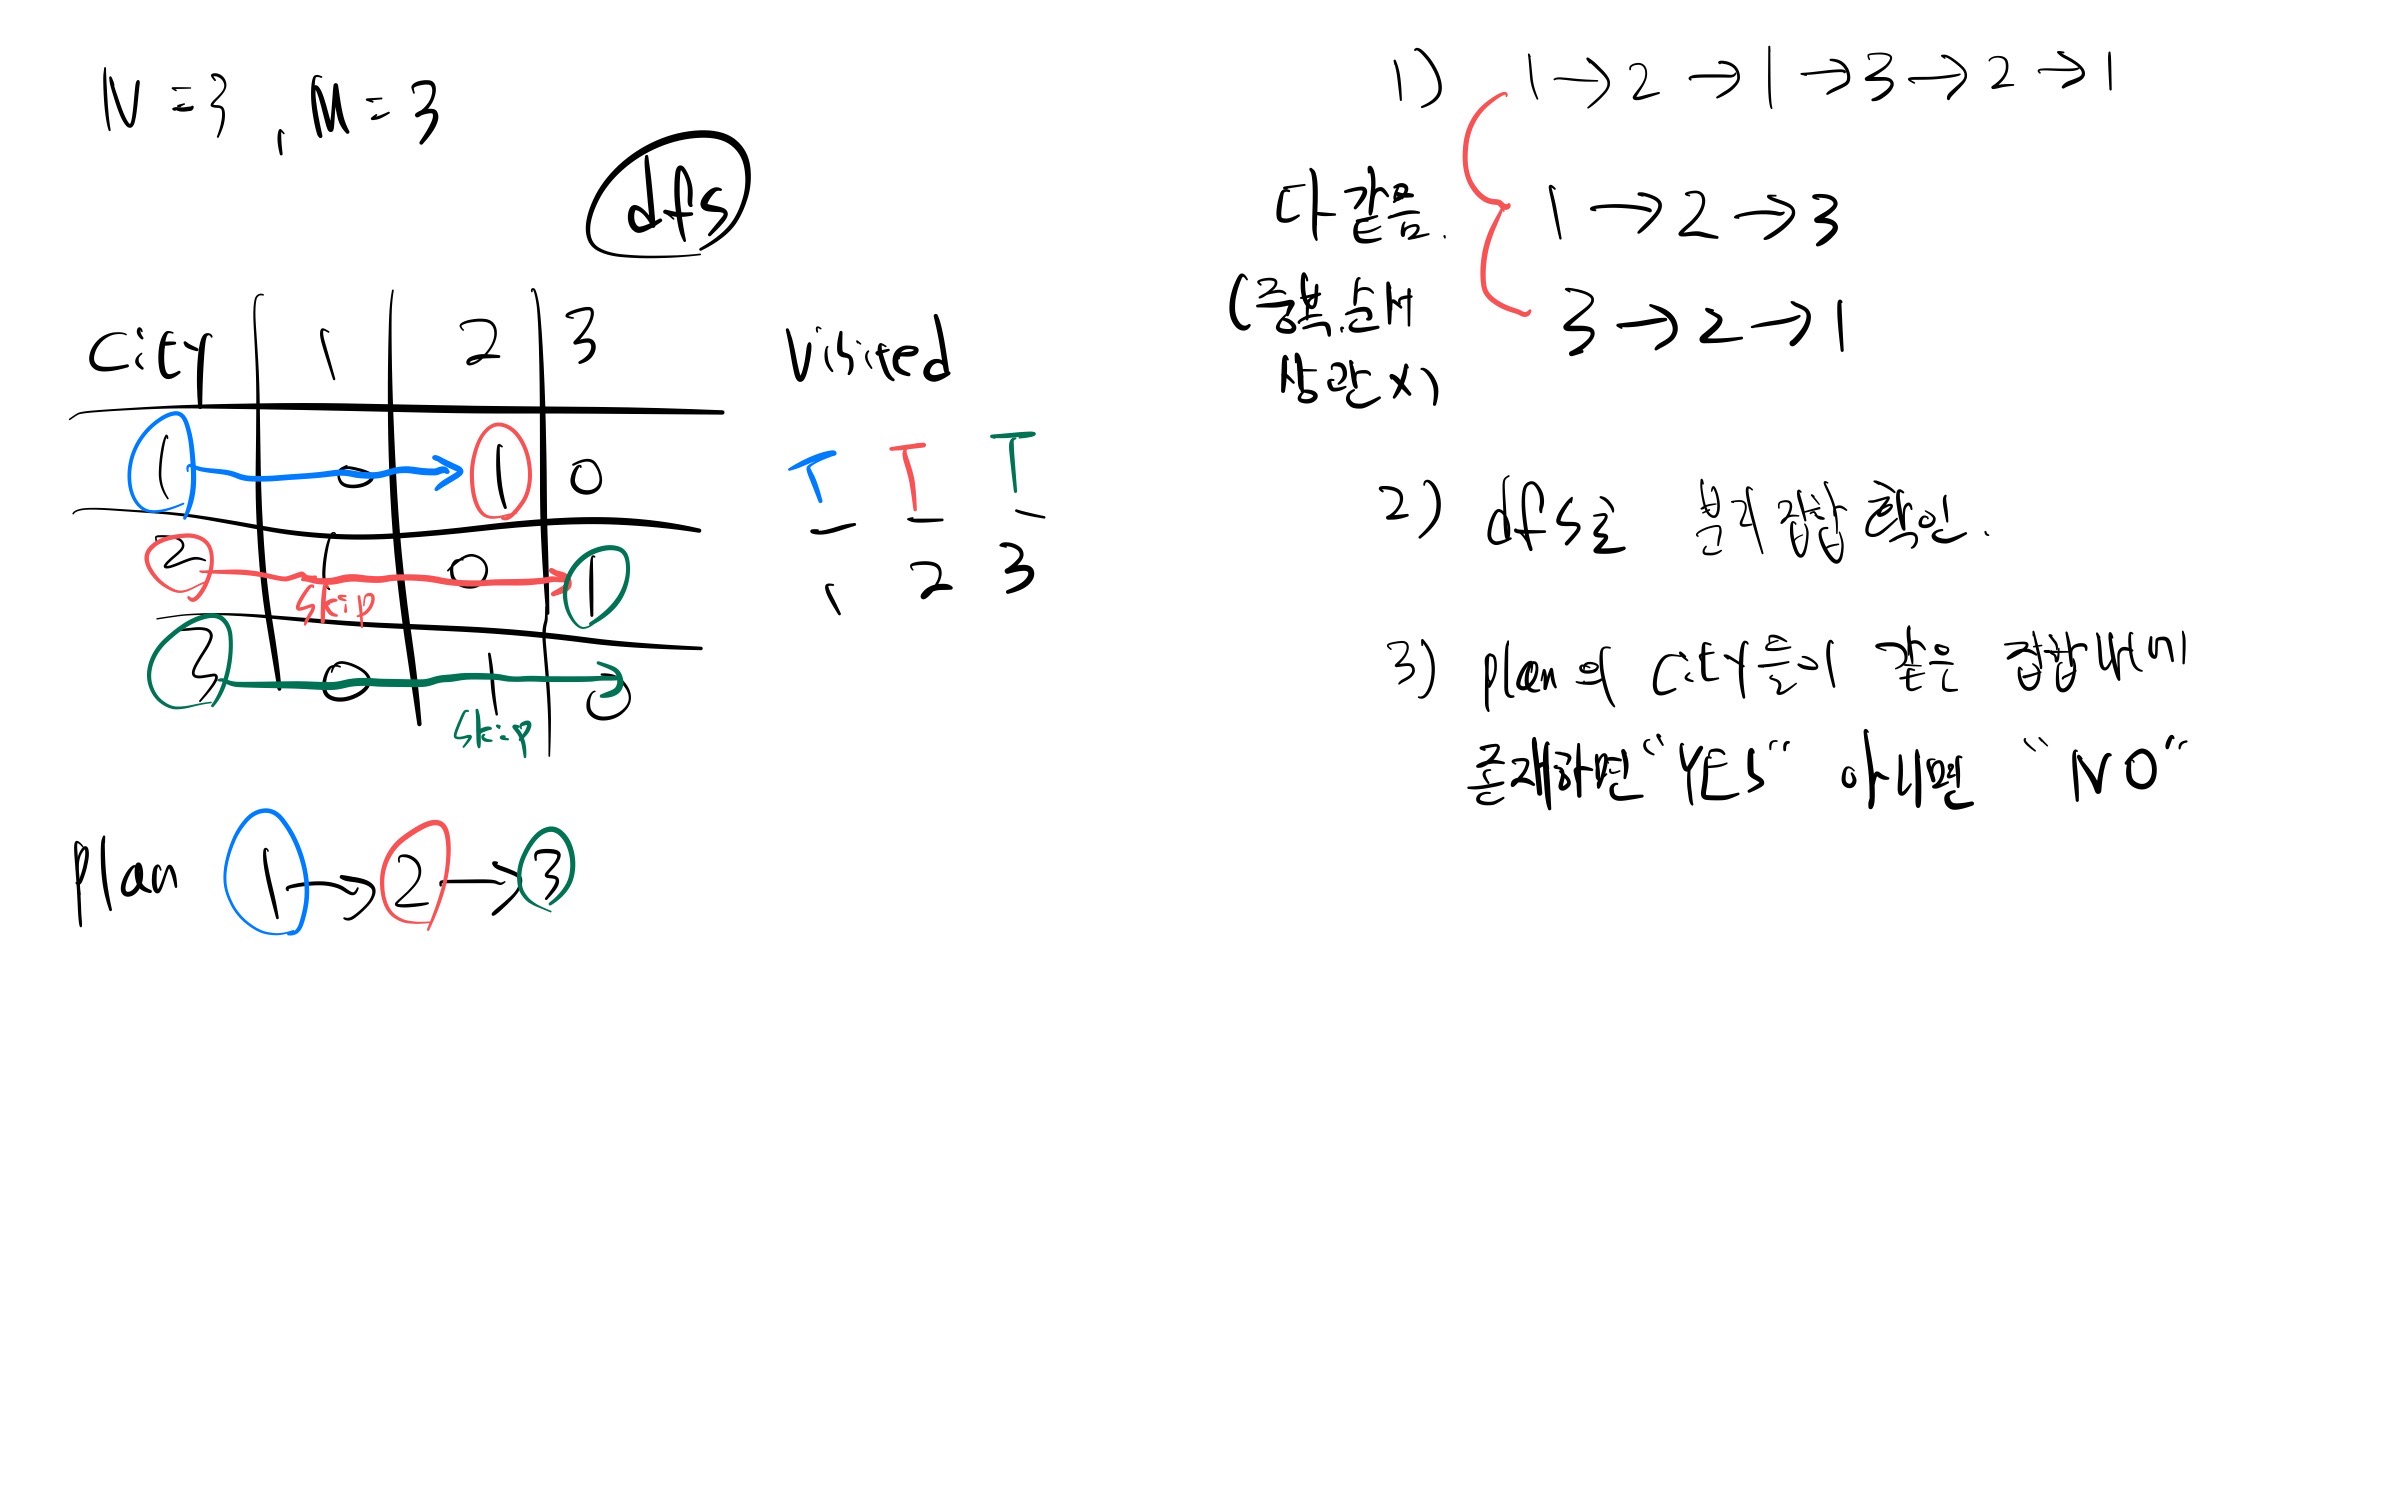 N = 3, M = 3
dfs
City 1 2 3
1 0 1 0
2 1 0 1
skip
3 0 1 0
skip
Visited
T T T
1 2 3
Plan 1 → 2 → 3
1) 1 → 2 → 1 → 3 → 2 → 1
1 → 2 → 3
3 → 2 → 1
다 같음.
(중복, 순서
상관 X)
2) dfs로 분리 집합 확인.
3) plan의 city들이 같은 집합 내에
존재하면 "YES" 아니면 "NO"